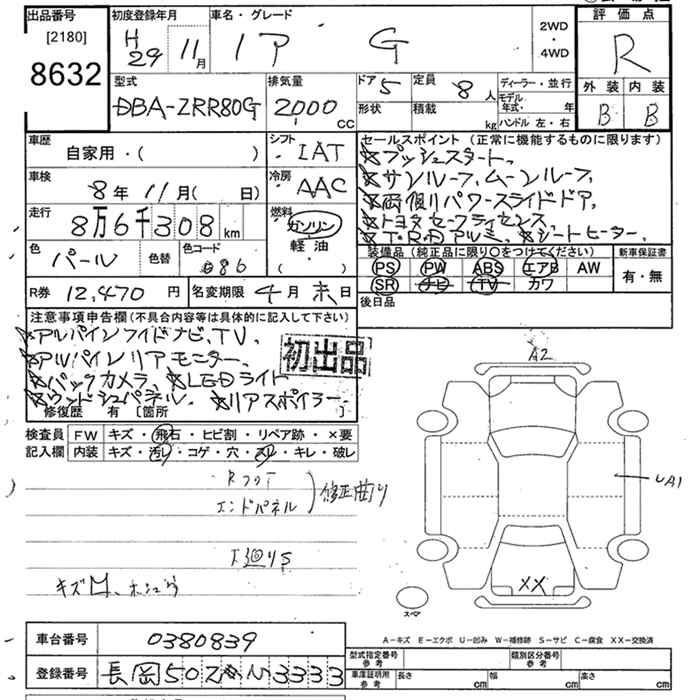 出品番号 初度登録年月 車名・グレード 2WD・4WD 評価点
[2180] H29 11月 ノア G R
8632 外装 内装
型式 排気量 ドア 5 定員 8人 ディーラー・並行 B B
DBA-ZRR80G 2,000cc 形状 積載 kg モデル年式・ 年
ハンドル 左・右
車歴 シフト セールスポイント (正常に機能するものに限ります)
自家用・( ) IAT ☆プッシュスタート、
車検 冷房 ☆サンルーフ、ムーンルーフ、
8年 11月( 日) AAC ☆両側リパワースライドドア、
走行 燃料 ☆トヨタセーフティセンス
8万6千308km ガソリン ☆T・R・Dアルミ、☆シートヒーター、
色 色替 色コード 軽油 装備品 (純正品に限り○をつけてください) 新車保証書
パール 086 ・( ) PS PW ABS エアB AW 有・無
SR ナビ TV カワ
R券 12,470円 名変期限 4月末日 後日品
注意事項申告欄(不具合内容等は具体的に記入して下さい)
☆アルパインワイドナビ、TV、
☆アルパインリアモニター、 初出品
☆バックカメラ、☆LEDライト
☆ウッドシュパネル、☆リアスポイラー、
修復歴 有 [箇所 ]
検査員 FW キズ・飛石・ヒビ割・リペア跡・×要
記入欄 内装 キズ・汚れ・コゲ・穴・スレ・キレ・破レ
A2
Rフロア
エンドパネル 修正曲り
UA1
下廻りS
キズ凹、ホシュウ
XX
スペア
A-キズ E-エクボ U-凹み W-補修跡 S-サビ C-腐食 XX-交換済
車台番号 0380839 型式指定番号 参考 類別区分番号 参考
登録番号 長岡502 3333 車庫証明用 参考 長さ cm 幅 cm 高さ cm